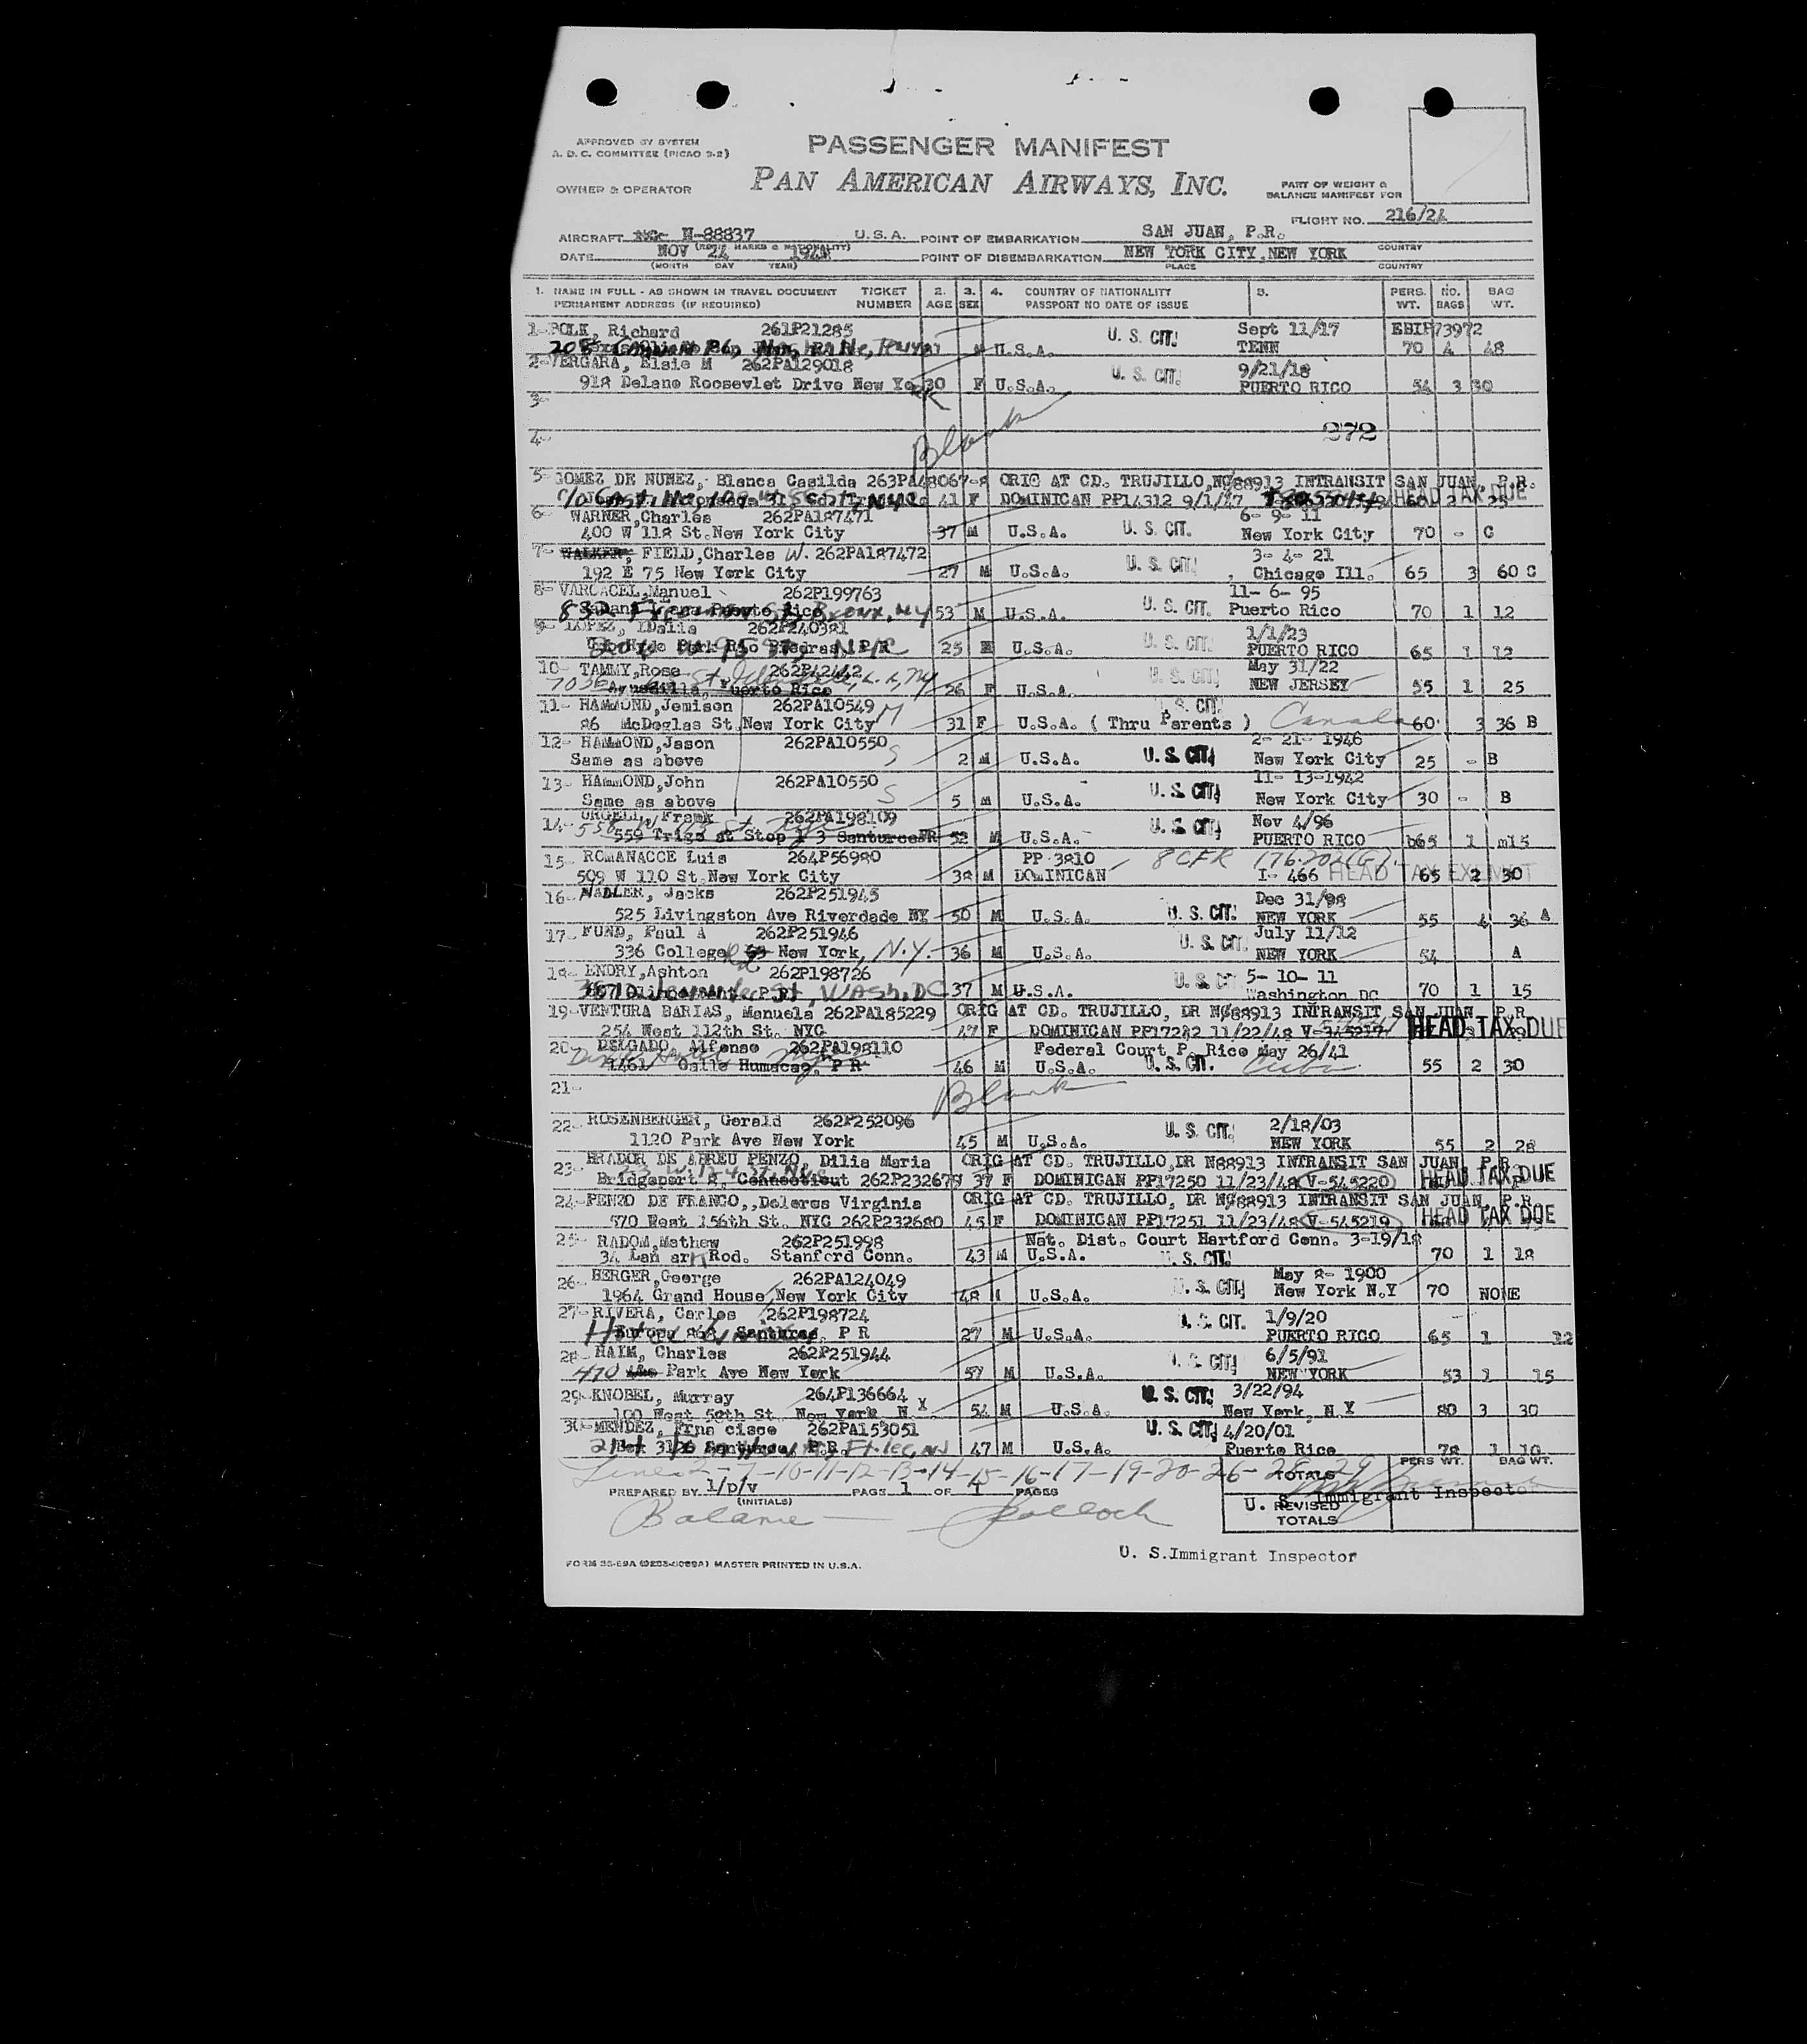 APPROVED BY SYSTEM
A. D. C. COMMITTEE (PICAO 9-2)
PASSENGER MANIFEST
OWNER & OPERATOR
PAN AMERICAN AIRWAYS, INC.
PART OF WEIGHT &
BALANCE MANIFEST FOR
FLIGHT NO. 216/24
AIRCRAFT N-88837 U.S.A. POINT OF EMBARKATION SAN JUAN, P.R.
(REG'N MARKS & NATIONALITY) COUNTRY
DATE NOV 24 POINT OF DISEMBARKATION NEW YORK CITY, NEW YORK
(MONTH DAY YEAR) PLACE COUNTRY
1. NAME IN FULL - AS SHOWN IN TRAVEL DOCUMENT TICKET 2. 3. 4. COUNTRY OF NATIONALITY 5. PERS. NO. BAG
PERMANENT ADDRESS (IF REQUIRED) NUMBER AGE SEX PASSPORT NO DATE OF ISSUE WT. BAGS WT.
1- POLK, Richard 261P21285 U. S. CIT. Sept 11/17 EBIP73972
U.S.A. TENN 70 4 48
2- VERGARA, Elsie M 262PA129018 U. S. CIT. 9/21/18
918 Delano Roosevlet Drive New Yo 30 F U.S.A. PUERTO RICO 54 3 30
3-
Blank
4- 272
5- GOMEZ DE NUNEZ, Blanca Casilda 263PA48067-8 ORIG AT CD. TRUJILLO, N88913 INTRANSIT SAN JUAN, P.R.
41 F DOMINICAN PP14312 9/1/47 HEAD TAX DUE
6- WARNER, Charles 262PA187471 6- 9- 11
400 W 118 St. New York City 37 M U.S.A. U. S. CIT. New York City 70 - C
7- WALKER, FIELD, Charles W. 262PA187472 3- 4- 21
192 E 75 New York City 27 M U.S.A. U. S. CIT. , Chicago Ill. 65 3 60 C
8- VARCACEL, Manuel 262P199763 11- 6- 95
Bronx, NY 53 M U.S.A. U. S. CIT. Puerto Rico 70 1 12
9- LOPEZ, IDalia 262P240381 1/1/23
Hyde Park Rio Piedras P R 25 U.S.A. U. S. CIT. PUERTO RICO 65 1 12
10- TAMMY, Rose 262P42442 May 31/22
Aguadilla, Puerto Rico 26 F U.S.A. U. S. CIT. NEW JERSEY 55 1 25
11- HAMMOND, Jemison 262PA10549 M U. S. CIT.
86 McDoglas St. New York City 31 F U.S.A. ( Thru Parents ) Canada 60 3 36 B
12- HAMMOND, Jason 262PA10550 S 2- 21- 1946
Same as above 2 M U.S.A. U. S. CIT. New York City 25 - B
13- HAMMOND, John 262PA10550 S 11- 13-1942
Same as above 5 M U.S.A. U. S. CIT. New York City 30 - B
14- URGELL, Frank 262PA198109 U. S. CIT. Nov 4/96
559 Trigo st Stop 3 Santurce PR 52 M U.S.A. PUERTO RICO 65 1 m15
15- ROMANACCE Luis 264P56980 PP 3810 8 CFR 176.202(G).
509 W 110 St. New York City 38 M DOMINICAN I- 466 HEAD TAX EXEMPT 65 2 30
16- NADLER, Jacks 262P251945 Dec 31/98
525 Livingston Ave Riverdade NY 50 M U.S.A. U. S. CIT. NEW YORK 55 4 36 A
17- FUND, Paul A 262P251946 July 11/12
336 College Rd New York, N.Y. 36 M U.S.A. U. S. CIT. NEW YORK 54 A
18- ENDRY, Ashton 262P198726 U. S. CIT. 5- 10- 11
St, WASH. DC 37 M U.S.A. Washington DC 70 1 15
19- VENTURA BARIAS, Manuela 262PA185229 ORIG AT CD. TRUJILLO, DR N88913 INTRANSIT SAN JUAN, P.R.
254 West 112th St. NYC 47 F DOMINICAN PP17282 11/22/48 HEAD TAX DUE
20- DELGADO, Alfonso 262PA198110 Federal Court P. Rico May 26/41
1461 Calle Humacao, P R 46 M U.S.A. U. S. CIT. Cuba 55 2 30
21- Blank
22- ROSENBERGER, Gerald 262P252096 U. S. CIT. 2/18/03
1120 Park Ave New York 45 M U.S.A. NEW YORK 55 2 28
23- BRADOR DE ABREU PENZO, Dilia Maria ORIG AT CD. TRUJILLO, DR N88913 INTRANSIT SAN JUAN, P.R.
Bridgeport 8, Connecticut 262P232679 37 F DOMINICAN PP17250 11/23/48 V-545220 HEAD TAX DUE
24- PENZO DE FRANCO,,Doloros Virginia ORIG AT CD. TRUJILLO, DR N88913 INTRANSIT SAN JUAN, P.R.
570 West 156th St. NYC 262P232680 45 F DOMINICAN PP17251 11/23/48 V-545219 HEAD TAX DUE
25- RADOM, Mathew 262P251998 Nat. Dist. Court Hartford Conn. 3-19/18
34 Lan ark Rod. Stanford Conn. 43 M U.S.A. U. S. CIT. 70 1 18
26- BERGER, George 262PA124049 May 8- 1900
1964 Grand House, New York City 48 U.S.A. U. S. CIT. New York N.Y 70 NONE
27- RIVERA, Carlos 262P198724 U. S. CIT. 1/9/20
Europa 868 Santurce, P R 27 M U.S.A. PUERTO RICO 65 1 12
28- HAIM, Charles 262P251944 U. S. CIT. 6/5/91
470 Park Ave New York 57 M U.S.A. NEW YORK 53 1 15
29- KNOBEL, Murray 264P136664 U. S. CIT. 3/22/94
100 West 58th St. New York N.Y. 54 M U.S.A. New York, N.Y 80 3 30
30- MENDEZ, Frna cisco 262PA153051 U. S. CIT. 4/20/01
Santurce, P.R. Ft. Lee, NJ 47 M U.S.A. Puerto Rico 78 1 10
Lines 2-7-10-11-12-13-14-15-16-17-19-20-26-28-29
TOTALS PERS WT. BAG WT.
PREPARED BY 1/p/v PAGE 1 OF 1 PAGES
(INITIALS)
U. S. Immigrant Inspector
REVISED TOTALS
Balance Bolloch
U. S. Immigrant Inspector
FORM MASTER PRINTED IN U.S.A.